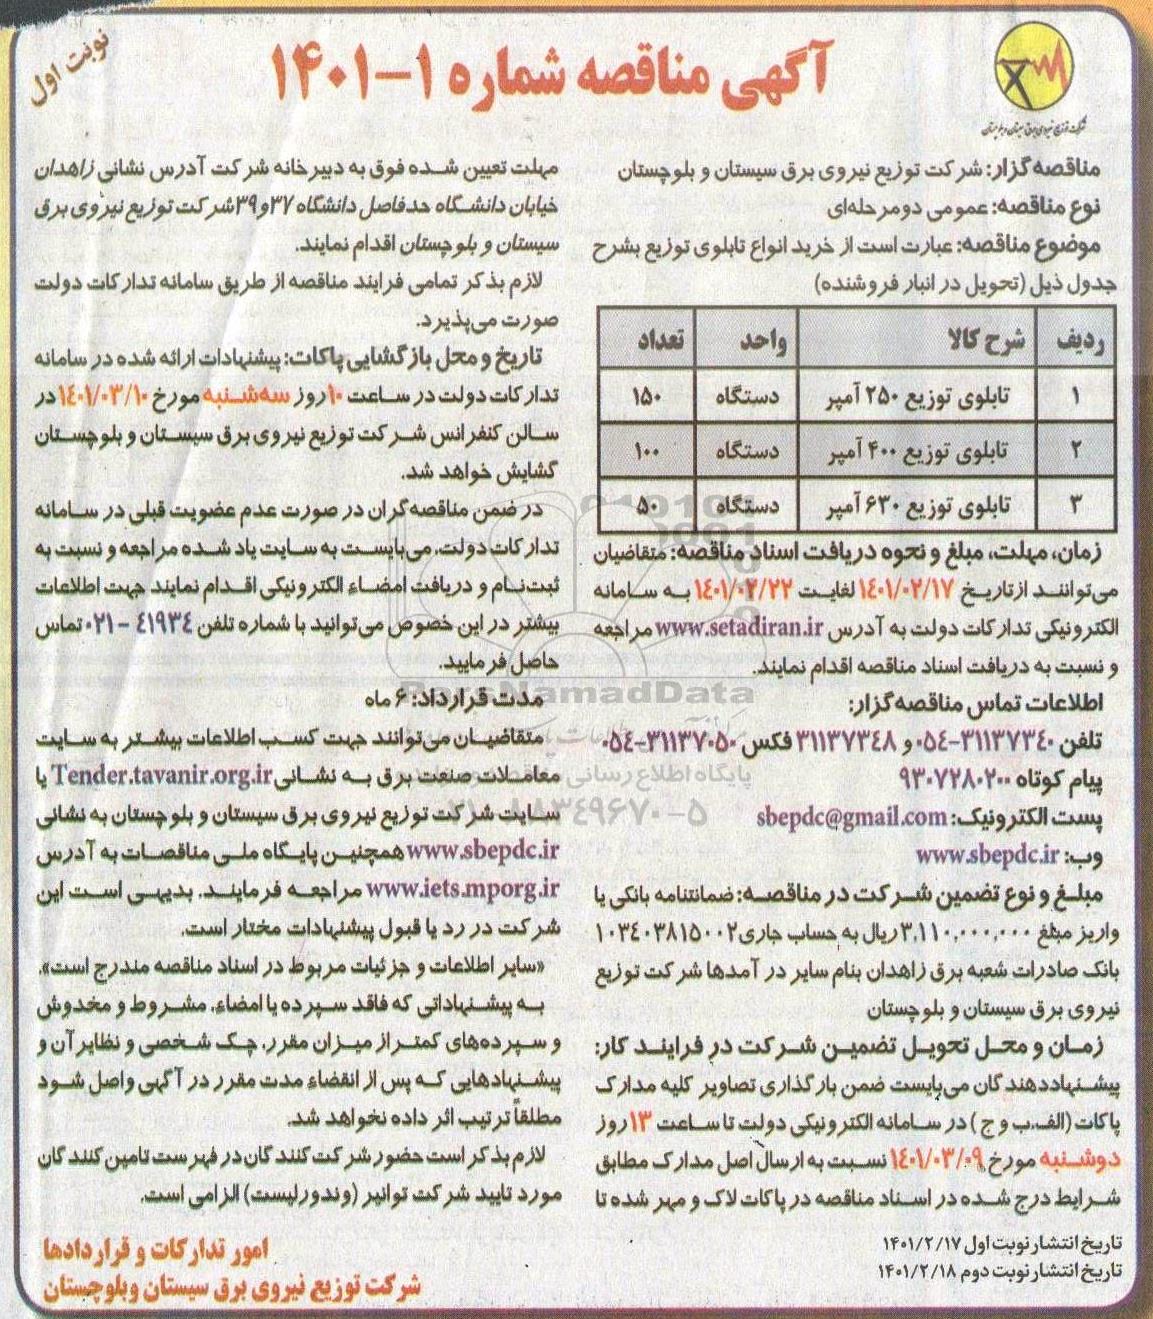 نوبت اول
آگهی مناقصه شماره ۱-۱۴۰۱
شرکت توزیع نیروی برق سیستان و بلوچستان
مناقصه‌گزار: شرکت توزیع نیروی برق سیستان و بلوچستان
نوع مناقصه: عمومی دو مرحله‌ای
موضوع مناقصه: عبارت است از خرید انواع تابلوی توزیع بشرح
جدول ذیل (تحویل در انبار فروشنده)
ردیف شرح کالا واحد تعداد
۱ تابلوی توزیع ۲۵۰ آمپر دستگاه ۱۵۰
۲ تابلوی توزیع ۴۰۰ آمپر دستگاه ۱۰۰
۳ تابلوی توزیع ۶۳۰ آمپر دستگاه ۵۰
زمان، مهلت، مبلغ و نحوه دریافت اسناد مناقصه: متقاضیان
می‌توانند از تاریخ ۱۴۰۱/۰۲/۱۷ لغایت ۱۴۰۱/۰۲/۲۲ به سامانه
الکترونیکی تدارکات دولت به آدرس www.setadiran.ir مراجعه
و نسبت به دریافت اسناد مناقصه اقدام نمایند.
اطلاعات تماس مناقصه‌گزار:
تلفن ۳۱۱۳۷۳۴۰-۰۵۴ و ۳۱۱۳۷۳۴۸ فکس ۳۱۱۳۷۰۵۰-۰۵۴
پیام کوتاه ۹۳۰۷۲۸۰۲۰۰
پست الکترونیک: sbepdc@gmail.com
وب: www.sbepdc.ir
مبلغ و نوع تضمین شرکت در مناقصه: ضمانتنامه بانکی یا
واریز مبلغ ۳,۱۱۰,۰۰۰,۰۰۰ ریال به حساب جاری ۱۰۳۴۰۳۸۱۵۰۰۲
بانک صادرات شعبه برق زاهدان بنام سایر درآمدها شرکت توزیع
نیروی برق سیستان و بلوچستان
زمان و محل تحویل تضمین شرکت در فرایند کار:
پیشنهاددهندگان می‌بایست ضمن بارگذاری تصاویر کلیه مدارک
پاکات (الف،ب و ج) در سامانه الکترونیکی دولت تا ساعت ۱۳ روز
دوشنبه مورخ ۱۴۰۱/۰۳/۰۹ نسبت به ارسال اصل مدارک مطابق
شرایط درج شده در اسناد مناقصه در پاکات لاک و مهر شده تا
مهلت تعیین شده فوق به دبیرخانه شرکت آدرس نشانی زاهدان
خیابان دانشگاه حدفاصل دانشگاه ۳۷ و ۳۹ شرکت توزیع نیروی برق
سیستان و بلوچستان اقدام نمایند.
لازم بذکر تمامی فرایند مناقصه از طریق سامانه تدارکات دولت
صورت می‌پذیرد.
تاریخ و محل بازگشایی پاکات: پیشنهادات ارائه شده در سامانه
تدارکات دولت در ساعت ۱۰ روز سه‌شنبه مورخ ۱۴۰۱/۰۳/۱۰ در
سالن کنفرانس شرکت توزیع نیروی برق سیستان و بلوچستان
گشایش خواهد شد.
در ضمن مناقصه‌گران در صورت عدم عضویت قبلی در سامانه
تدارکات دولت، می‌بایست به سایت یاد شده مراجعه و نسبت به
ثبت‌نام و دریافت امضاء الکترونیکی اقدام نمایند جهت اطلاعات
بیشتر در این خصوص می‌توانید با شماره تلفن ۴۱۹۳۴ - ۰۲۱ تماس
حاصل فرمایید.
ParsNamadData
مدت قرارداد: ۶ ماه
متقاضیان می‌توانند جهت کسب اطلاعات بیشتر به سایت
معاملات صنعت برق به نشانی Tender.tavanir.org.ir یا
پایگاه اطلاع رسانی
سایت شرکت توزیع نیروی برق سیستان و بلوچستان به نشانی
۰۲۱-۸۸۳۴۹۶۷۰-۵
www.sbepdc.ir همچنین پایگاه ملی مناقصات به آدرس
www.iets.mporg.ir مراجعه فرمایند. بدیهی است این
شرکت در رد یا قبول پیشنهادات مختار است.
«سایر اطلاعات و جزئیات مربوط در اسناد مناقصه مندرج است».
به پیشنهاداتی که فاقد سپرده یا امضاء، مشروط و مخدوش
و سپرده‌های کمتر از میزان مقرر، چک شخصی و نظایر آن و
پیشنهادهایی که پس از انقضاء مدت مقرر در آگهی واصل شود
مطلقاً ترتیب اثر داده نخواهد شد.
لازم بذکر است حضور شرکت کنندگان در فهرست تامین کنندگان
مورد تایید شرکت توانیر (وندورلیست) الزامی است.
تاریخ انتشار نوبت اول ۱۴۰۱/۲/۱۷
تاریخ انتشار نوبت دوم ۱۴۰۱/۲/۱۸
امور تدارکات و قراردادها
شرکت توزیع نیروی برق سیستان وبلوچستان